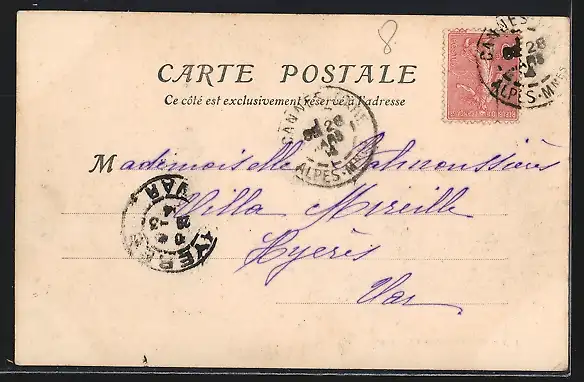 8
CARTE POSTALE
Ce côté est exclusivement réservé à l'adresse
CANNES
28
ALPES-Mmes
CANNES
28
ALPES-Mmes
Mademoiselle
Villa Mireille
Hyères
Var
HYERES
VAR